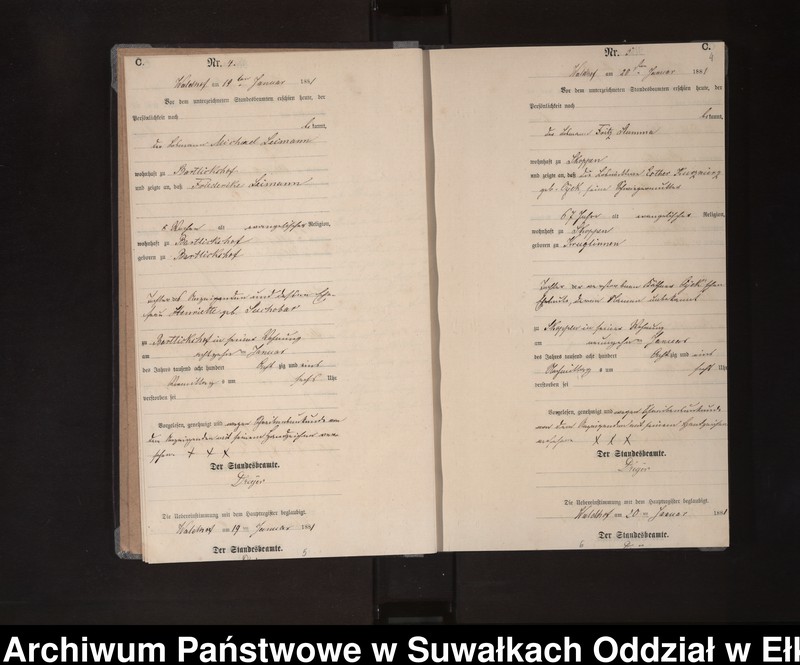 C.
Nr. 4.
Waldhof am 19ten Januar 1881
Vor dem unterzeichneten Standesbeamten erschien heute, der
Persönlichkeit nach
bekannt,
Michael Leimann
wohnhaft zu Bartlickshof
und zeigte an, daß Friederike Leimann
6 Wochen alt evangelischer Religion,
wohnhaft zu Bartlickshof
geboren zu Bartlickshof
Tochter des Anzeigenden und dessen Ehe-
frau Henriette geb.
zu Bartlickshof in seiner Wohnung
am achtzehnten Januar
des Jahres tausend acht hundert achtzig und eins
Nachmittag um sechs Uhr
verstorben sei
Vorgelesen, genehmigt und wegen Schreibensunkunde von
dem Anzeigenden mit seinem Handzeichen ver-
sehen + + X
Der Standesbeamte.
Die Uebereinstimmung mit dem Hauptregister beglaubigt.
Waldhof am 19ten Januar 1881
Der Standesbeamte.
5
C.
Nr. 5.
4
Waldhof am 20ten Januar 1881
Vor dem unterzeichneten Standesbeamten erschien heute, der
Persönlichkeit nach
bekannt,
Fritz
wohnhaft zu Skoppen
und zeigte an, daß die
geb. seine Schwiegermutter
67 Jahr alt evangelischer Religion,
wohnhaft zu Skoppen
geboren zu Kruglinnen
Tochter der verstorbenen
Eheleute, deren Namen unbekannt
zu Skoppen in seiner Wohnung
am neunzehnten Januar
des Jahres tausend acht hundert achtzig und eins
Nachmittag um fünf Uhr
verstorben sei
Vorgelesen, genehmigt und wegen Schreibensunkunde
von dem Anzeigenden mit seinem Handzeichen
versehen X X X
Der Standesbeamte.
Die Uebereinstimmung mit dem Hauptregister beglaubigt.
Waldhof am 20ten Januar 1881
Der Standesbeamte.
6
Archiwum Państwowe w Suwałkach Oddział w Ełk